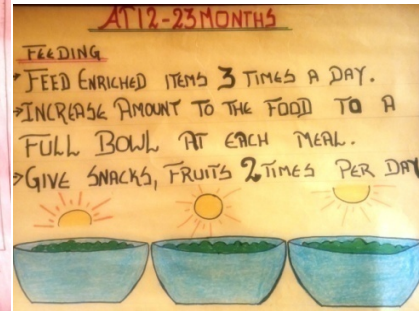 AT 12-23 MONTHS
FEEDING
→FEED ENRICHED ITEMS 3 TIMES A DAY.
→INCREASE AMOUNT TO THE FOOD TO A
FULL BOWL AT EACH MEAL.
→GIVE SNACKS, FRUITS 2 TIMES PER DAY